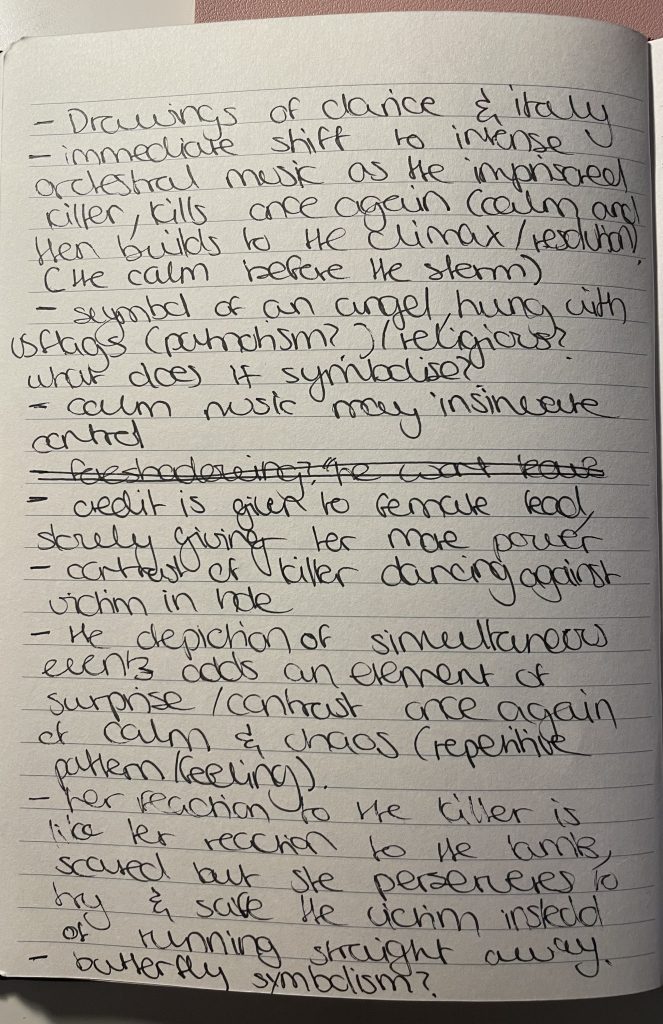 - Drawings of clarice & italy
- immediate shift to intense
orchestral music as the imprisoned
killer, kills once again (calm and
then builds to the climax/resolution)
(the calm before the storm)
- symbol of an angel, hung with
US flags (patriotism?)/religious?
what does it symbolise?
- calm music may insinuate
control
- foreshadowing?, he wont leave
- credit is given to female lead,
slowly giving her more power
- contrast of killer dancing against
victim in hole
- the depiction of simultaneous
events adds an element of
surprise/contrast once again
of calm & chaos (repetitive
pattern/feeling).
- her reaction to the killer is
like her reaction to the lambs,
scared but she perseveres to
try & save the victim instead
of running straight away.
- butterfly symbolism?